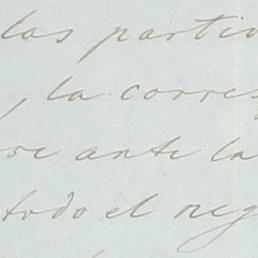 las parti
, la corres
re ante la
todo el neg